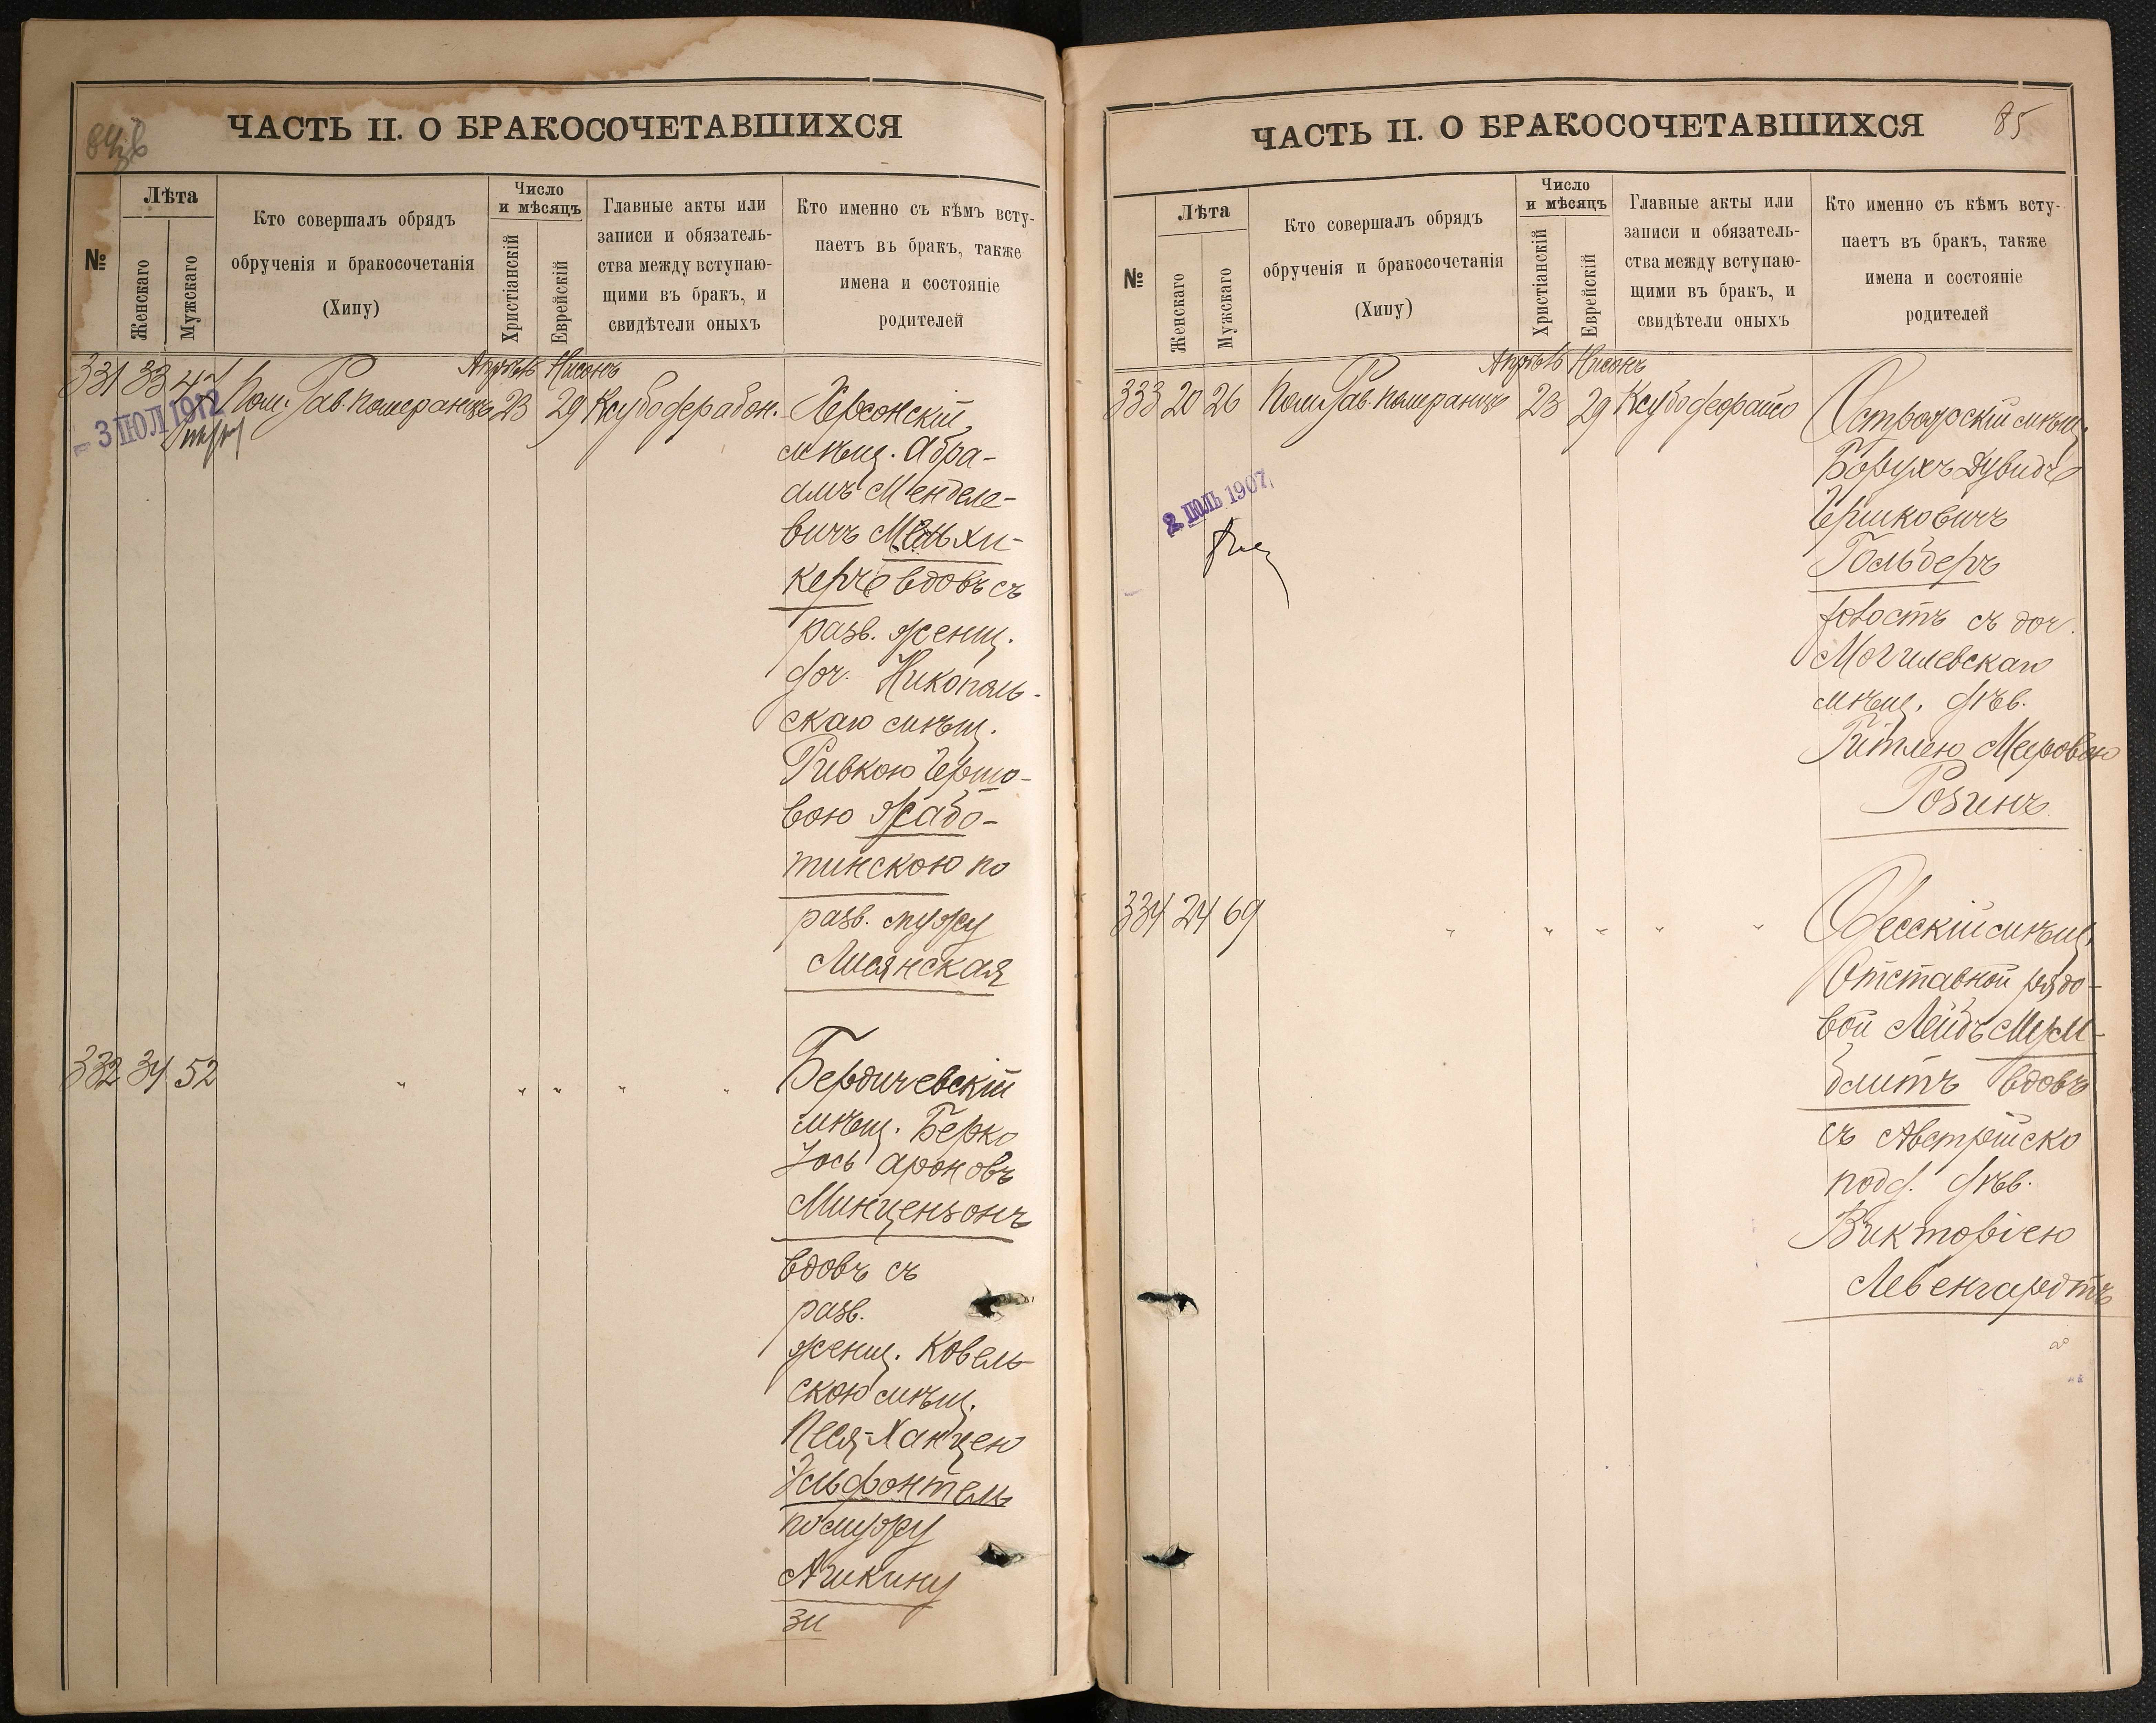 84 об
ЧАСТЬ II. О БРАКОСОЧЕТАВШИХСЯ
№
Лѣта
Женскаго
Мужскаго
Кто совершалъ обрядъ
обрученія и бракосочетанія
(Хипу)
Число
и мѣсяцъ
Христіанскій
Еврейскій
Главные акты или
записи и обязатель-
ства между вступаю-
щими въ бракъ, и
свидѣтели оныхъ
Кто именно съ кѣмъ всту-
паетъ въ бракъ, также
имена и состояніе
родителей
Апрѣль Нисонъ
331 33 47 Пом. Рав. Померанцъ 23 29
- 3 ІЮЛ 1912
Херсонскій
мѣщ. Абра-
амъ Менделе-
вичъ
керъ вдовъ съ
разв. женщ.
доч. Никополь-
скаго мѣщ.
Ривкою Гершо-
вою Жабо-
тинскою по
разв. мужу
Лисянская
332 34 52 " " " " "
Бердичевскій
мѣщ. Берко
Іось Ароновъ
Минцензонъ
вдовъ съ
разв.
женщ. Ковель-
скою мѣщ.
Песя-Ханцею
Эльфонтель
по мужу
85
ЧАСТЬ II. О БРАКОСОЧЕТАВШИХСЯ
№
Лѣта
Женскаго
Мужскаго
Кто совершалъ обрядъ
обрученія и бракосочетанія
(Хипу)
Число
и мѣсяцъ
Христіанскій
Еврейскій
Главные акты или
записи и обязатель-
ства между вступаю-
щими въ бракъ, и
свидѣтели оныхъ
Кто именно съ кѣмъ всту-
паетъ въ бракъ, также
имена и состояніе
родителей
Апрѣль Нисонъ
333 20 26 Пом. Рав. Померанцъ 23 29
2 ІЮЛЬ 1907
мѣщ.
Борухъ Дувидъ
Гершковичъ
Гольдеръ
холостъ съ доч.
Могилевскаго
мѣщ. дѣв.
Гитлею Меировою
Розинъ
334 24 69 " " " " "
Одесскій мѣщ.
Отставной рядо-
вой Лейбъ Мум-
блитъ вдовъ
съ Австрійско
подд. дѣв.
Викторіею
Левенгардтъ